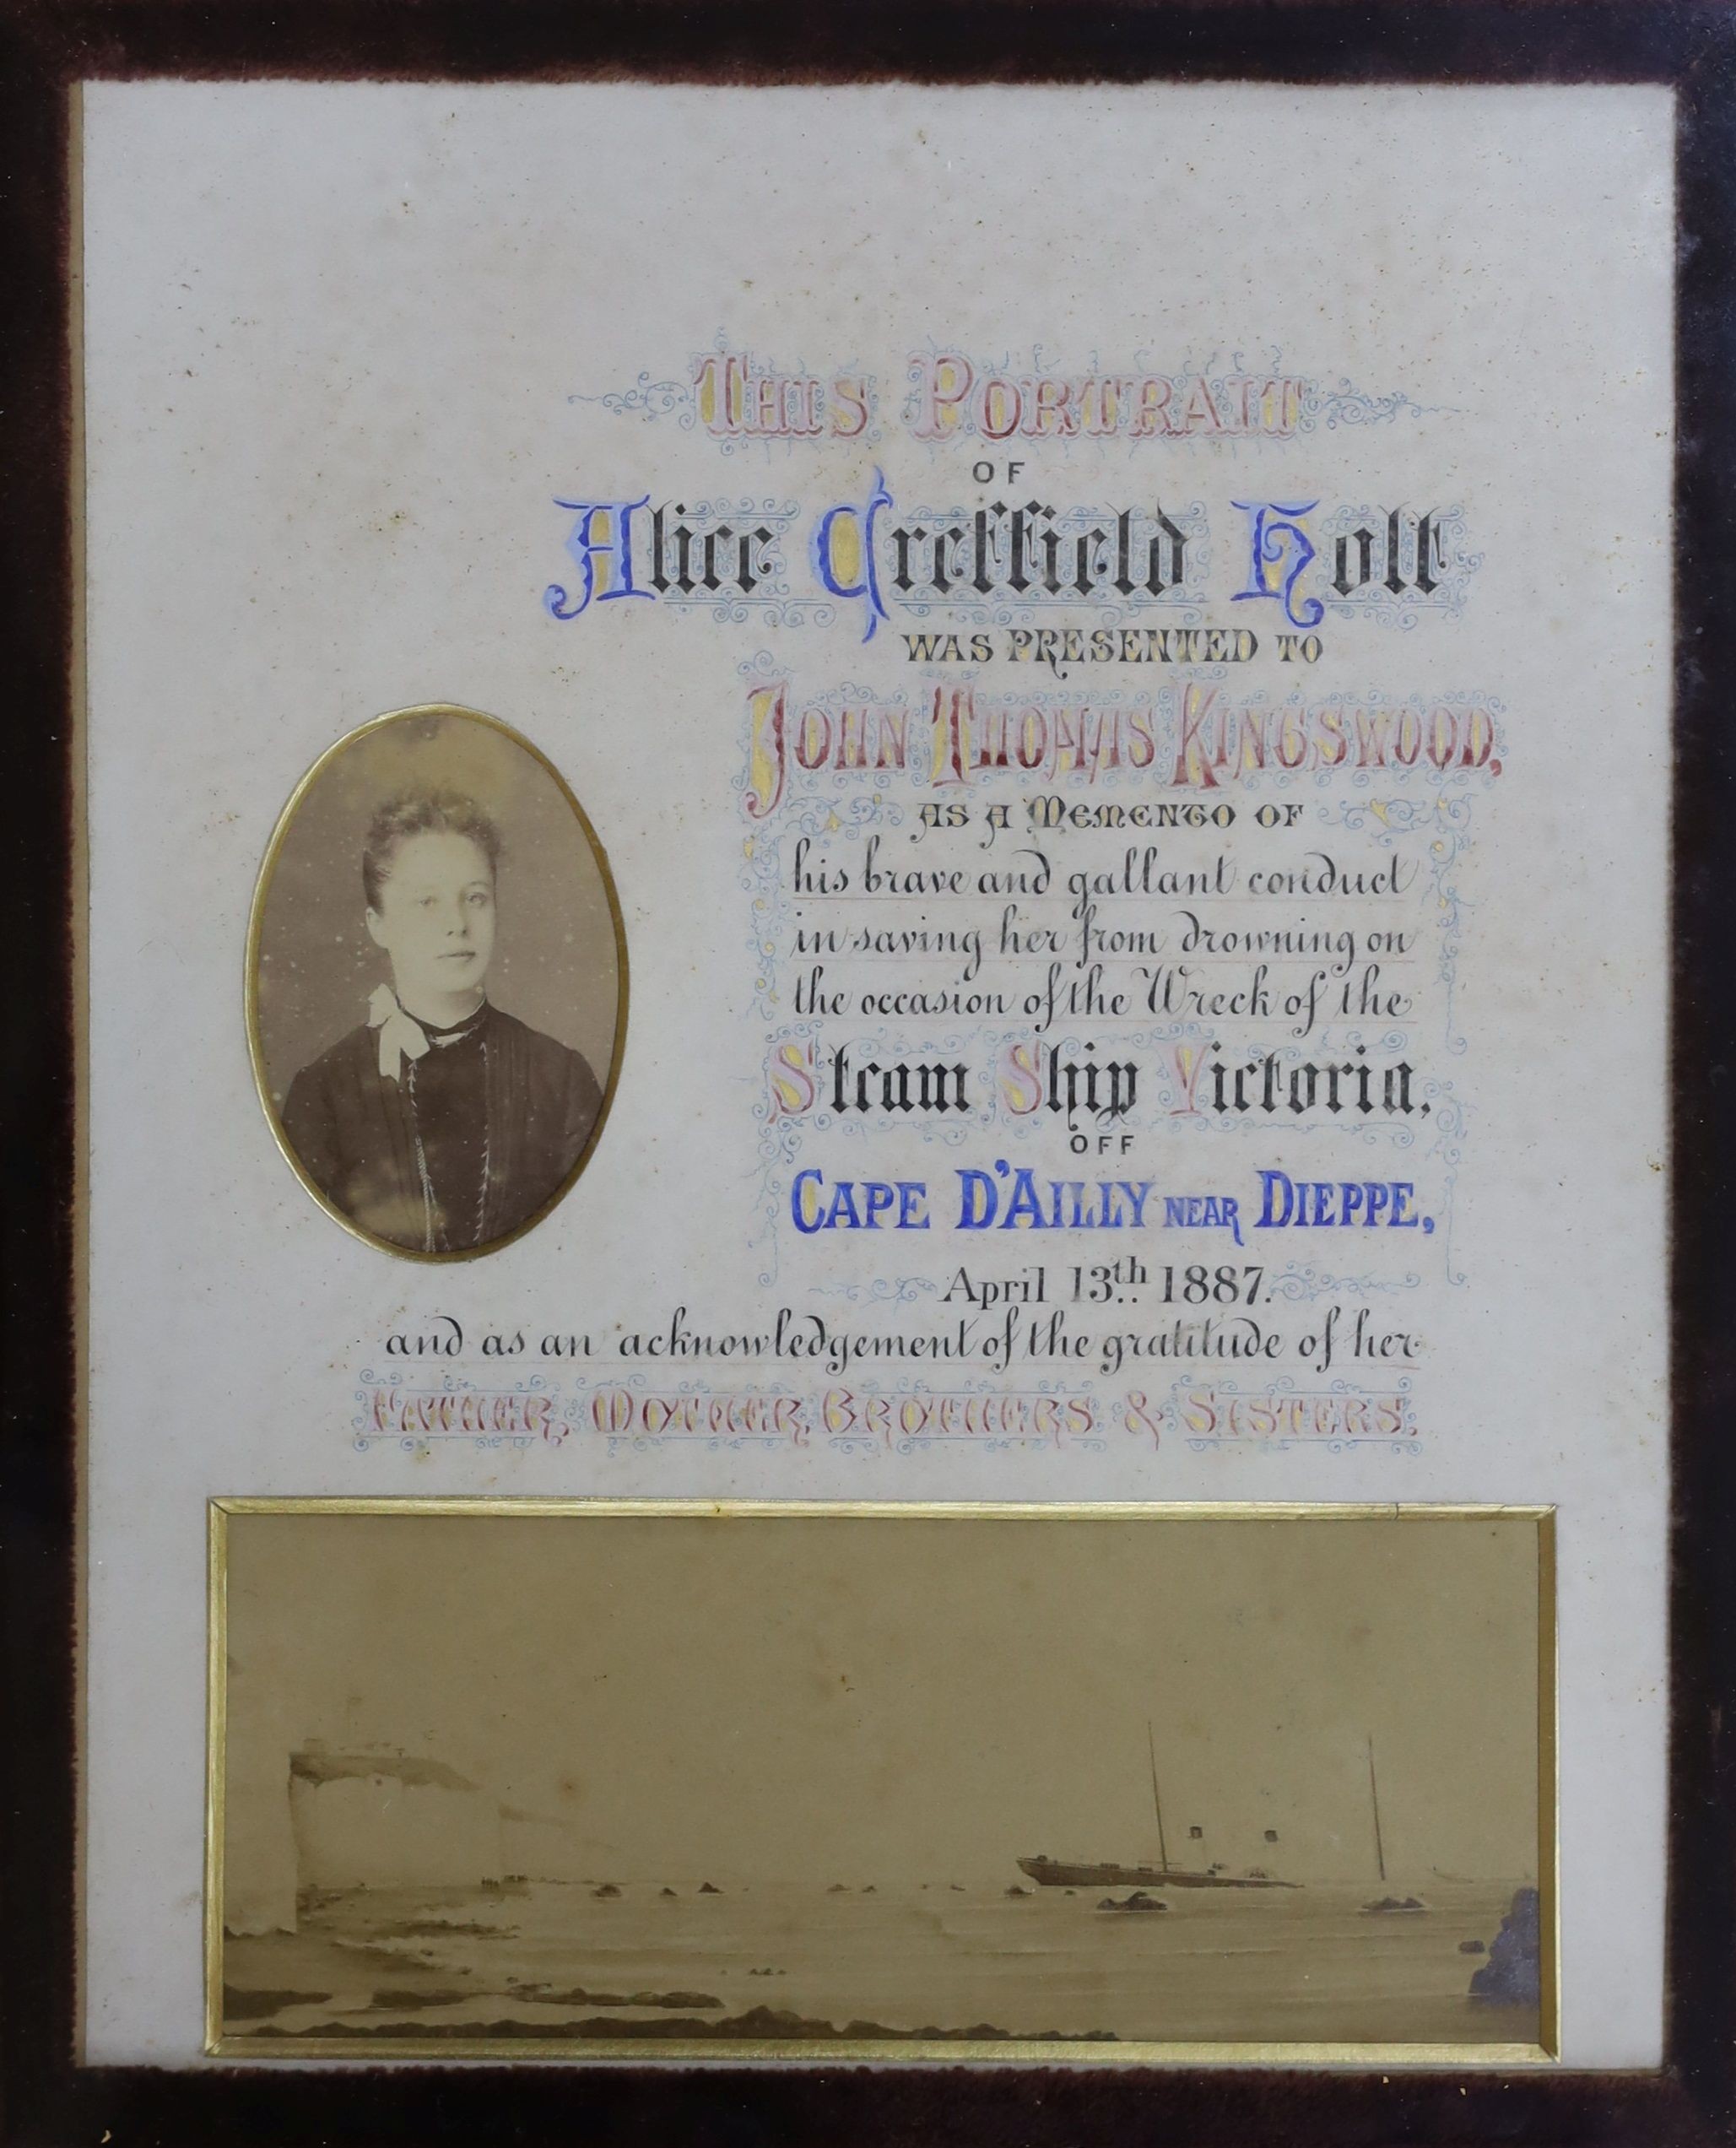 THIS PORTRAIT
OF
Alice Creffield Holt
WAS PRESENTED TO
JOHN THOMAS KINGSWOOD,
AS A MEMENTO OF
his brave and gallant conduct
in saving her from drowning on
the occasion of the Wreck of the
Steam Ship Victoria,
OFF
CAPE D'AILLY NEAR DIEPPE,
April 13th 1887.
and as an acknowledgement of the gratitude of her
FATHER, MOTHER, BROTHERS & SISTERS.